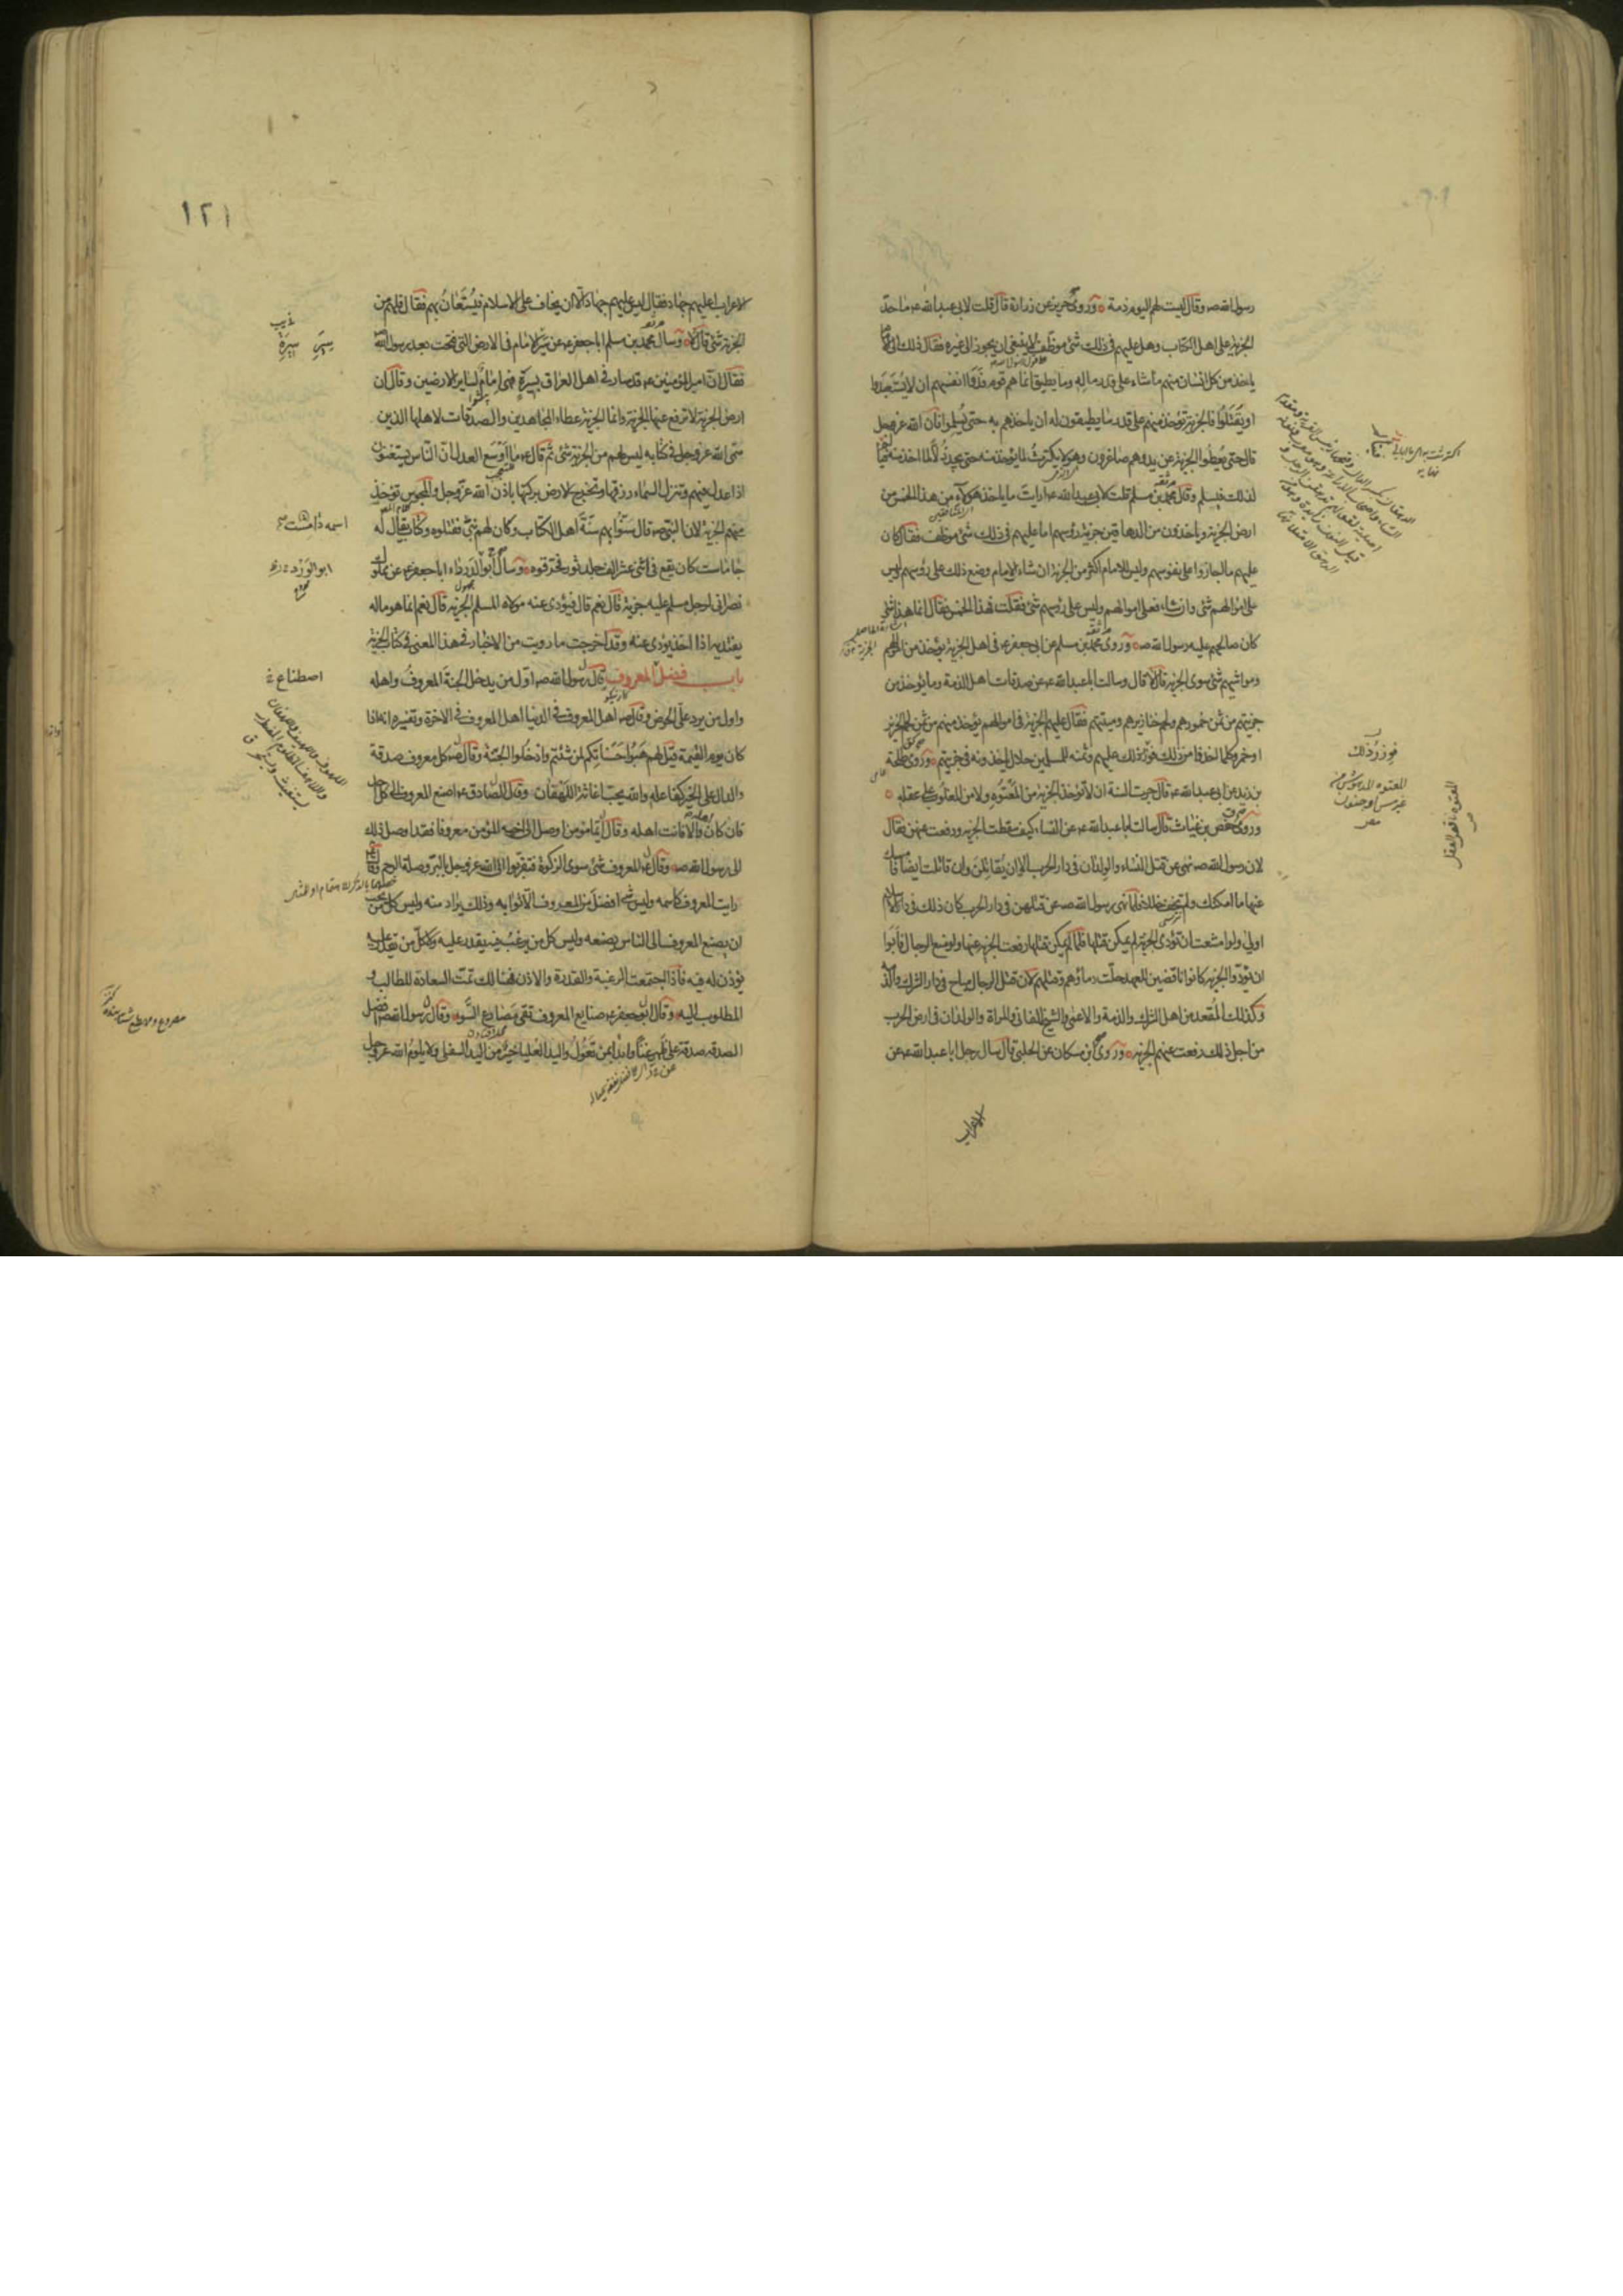 رسول الله صه وقال ليست لهم اليوم ذمة وروى حريز عن زرارة قال قلت لابى عبدالله عه ما حدّ
الجزية على اهل الكتاب وهل عليهم فى ذلك شئ موظّف لا ينبغى ان يجوز الى غيره فقال ذلك الى الامام
ياخذ من كل انسان منهم ما شاء على قدر ماله وما يطيق انما هم قوم فدوا انفسهم ان لا يُستعبدوا
او يُقتلوا فالجزية تؤخذ منهم على قدر ما يطيقون له ان ياخذهم به حتى يُسلموا فان الله عز وجل
قال حتى يُعطوا الجزية عن يد وهم صاغرون وهو لا يكترث لما يؤخذ منه حتى يجد ذُلّا لما اخذ منه فيالم
لذلك فيسلم وقال محمد بن مسلم قلت لابى عبدالله عه ارايت ما ياخذ هؤلاء من هذا الخمس من
ارض الجزية وياخذون من الدهاقين جزية رؤسهم اما عليهم فى ذلك شئ موظف فقال كان
عليهم ما اجازوا على نفوسهم وليس للامام اكثر من الجزية ان شاء الامام وضع ذلك على رؤسهم وليس
على اموالهم شئ وان شاء فعلى اموالهم وليس على رؤسهم شئ فقلت فهذا الخمس فقال انما هذا شئ
كان صالحهم عليه رسول الله صه وروى محمد بن مسلم عن ابى جعفر عه فى اهل الجزية يؤخذ من اموالهم
ومواشيهم شئ سوى الجزية قال لا قال وسالت ابا عبدالله عه عن صدقات اهل الذمة وما يؤخذ من
جزيتهم من ثمن خمورهم ولحم خنازيرهم وميتتهم فقال عليهم الجزية فى اموالهم يؤخذ منهم من ثمن لحم الخنزير
او خمر وكلما اخذوا من ذلك فوزر ذلك عليهم وثمنه للمسلمين حلال ياخذونه فى جزيتهم وروى طلحة
بن زيد عن ابى عبدالله عه قال جرت السنة ان لا تؤخذ الجزية من المعتوه ولا من المغلوب على عقله
وروى حفص بن غياث قال سالت ابا عبدالله عه عن النساء كيف سقطت الجزية ورفعت عنهن فقال
لان رسول الله صه نهى عن قتل النساء والولدان فى دار الحرب الا ان يُقاتلن وان قاتلت ايضا فامسك
عنها ما امكنك ولم تخف خللا فلما نهى رسول الله صه عن قتلهن فى دار الحرب كان ذلك فى دار الاسلام
اولى ولو امتنعت ان تؤدى الجزية لم يمكن قتلها فلما لم يمكن قتلها رفعت الجزية عنها ولو منع الرجال فابوا
ان يؤدوا الجزية كانوا ناقضين للعهد وحلت دماؤهم وقتلهم لان قتل الرجال مباح فى دار الشرك والذمة
وكذلك المُقعد من اهل الشرك والذمة والاعمى والشيخ الفانى والمراة والولدان فى ارض الحرب
من اجل ذلك رفعت عنهم الجزية وروى ابن مسكان عن الحلبى قال سال رجل ابا عبدالله عه عن
الاعراب
فوزر ذلك
١٢١
الاعراب اعليهم جهاد فقال ليس عليهم جهاد الا ان يخاف على الاسلام فيُستعان بهم فقال فلهم من
الجزية شئ قال لا وسال محمد بن مسلم ابا جعفر عه عن سير الامام فى الارض التى فتحت بعد رسول الله صه
فقال ان امير المؤمنين عه قد سار فى اهل العراق بسيرة فهى امام لساير الارضين وقال ان
ارض الجزية لا ترفع عنها الجزية وانما الجزية عطاء المجاهدين والصدقات لاهلها الذين
سمى الله عز وجل فى كتابه ليس لهم من الجزية شئ ثم قال عه ما اوسع العدل ان الناس يستغنون
اذا عدل فيهم وتنزل السماء رزقها وتخرج الارض بركتها باذن الله عز وجل والمجوس تؤخذ
منهم الجزية لان النبى صه قال سنّوا بهم سنّة اهل الكتاب وكان لهم نبىّ فقتلوه وكتاب يقال له
جاماست كان يقع فى اثنى عشر الف جلد ثور فحرقوه وسال ابو الورد ابا جعفر عه عن مملوك
نصرانى لرجل مسلم عليه جزية قال نعم قال فيؤدى عنه مولاه المسلم الجزية قال نعم انما هو ماله
يفتديه اذا اخذ يؤدى عنه وقد اخرجت ما رويت من الاخبار فى هذا المعنى فى كتاب الجزية
باب فضل المعروف قال رسول الله صه اول من يدخل الجنة المعروف واهله
واول من يرد على الحوض وقال صه اهل المعروف فى الدنيا اهل المعروف فى الاخرة وتفسيره انه اذا
كان يوم القيمة قيل لهم هَبُوا حسناتكم لمن شئتم وادخلوا الجنّة وقال صه كل معروف صدقة
والدال على الخير كفاعله والله يحب اغاثة اللهفان وقال الصادق عه اصنع المعروف الى كل احد
فان كان اهله والا فانت اهله وقال عه ايما مؤمن اوصل الى اخيه المؤمن معروفا فقد اوصل ذلك
الى رسول الله صه وقال عه المعروف شئ سوى الزكوة فتقربوا الى الله عز وجل بالبرّ وصلة الرحم وقال عه
رايت المعروف كاسمه وليس شئ افضل من المعروف الا ثوابه وذلك يراد منه وليس كل من يحب
ان يصنع المعروف الى الناس يصنعه وليس كل من يرغب فيه يقدر عليه ولا كل من يقدر عليه
يؤذن له فيه فاذا اجتمعت الرغبة والقدرة والاذن فهنالك تمّت السعادة للطالب و
المطلوب اليه وقال ابو جعفر عه صنايع المعروف تقى مصارع السوء وقال رسول الله صه افضل
الصدقة صدقة على ظهر غنى وابدا بمن تعول واليد العليا خير من اليد السفلى ولا يلوم الله عز وجل
سيرة
اصطناع